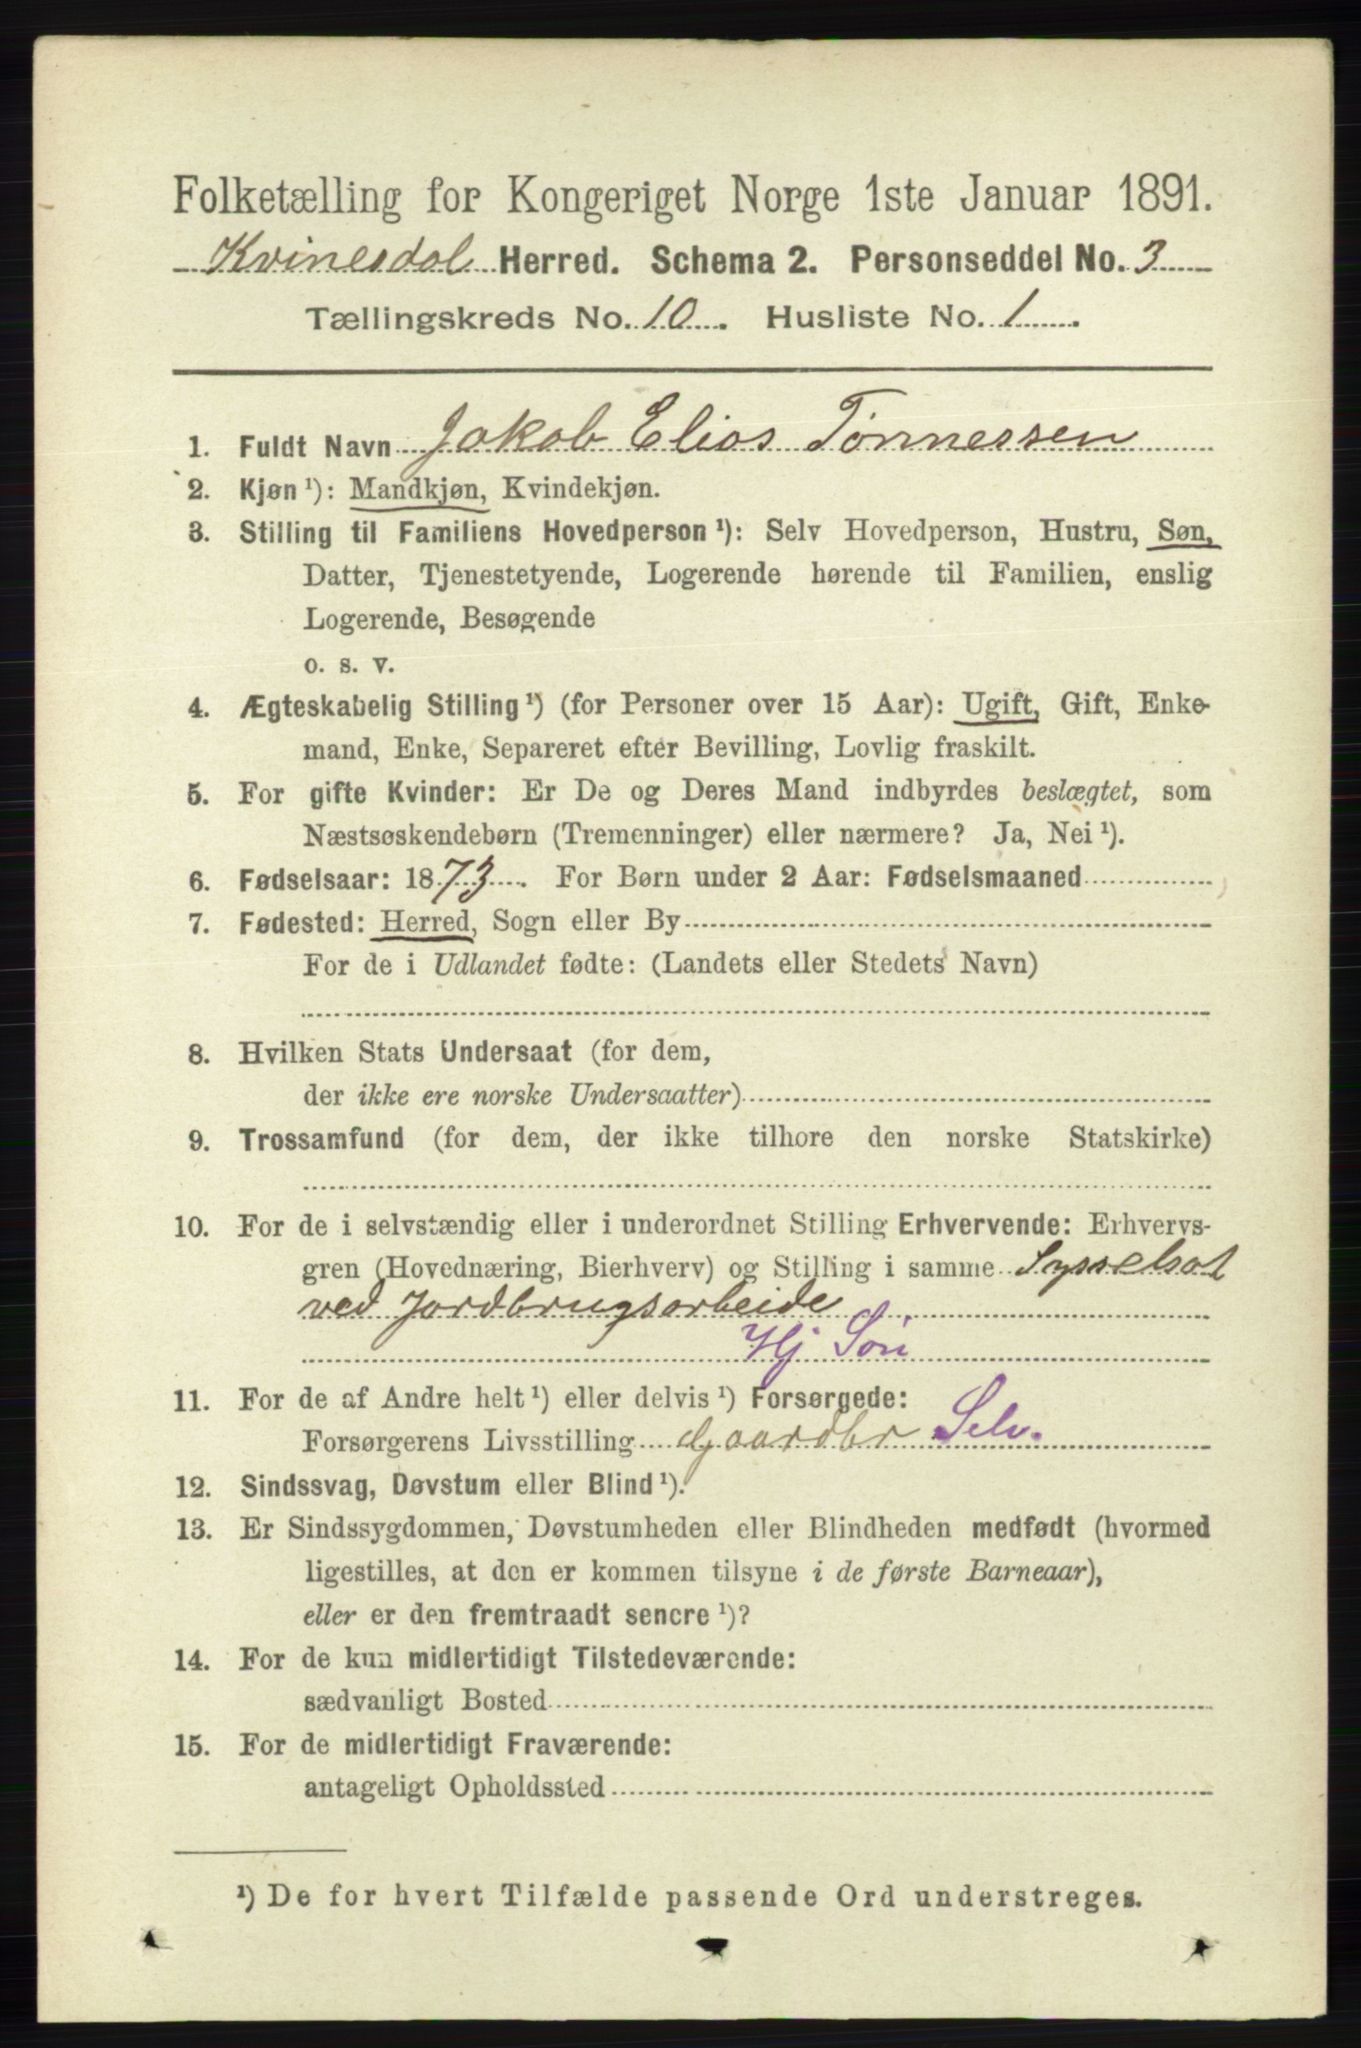 Folketælling for Kongeriget Norge 1ste Januar 1891.
Kvinesdal Herred. Schema 2. Personseddel No. 3
Tællingskreds No. 10. Husliste No. 1.
1. Fuldt Navn Jakob Elias Tønnessen
2. Kjøn¹): Mandkjøn, Kvindekjøn.
3. Stilling til Familiens Hovedperson¹): Selv Hovedperson, Hustru, Søn,
Datter, Tjenestetyende, Logerende hørende til Familien, enslig
Logerende, Besøgende
o. s. v.
4. Ægteskabelig Stilling¹) (for Personer over 15 Aar): Ugift, Gift, Enke-
mand, Enke, Separeret efter Bevilling, Lovlig fraskilt.
5. For gifte Kvinder: Er De og Deres Mand indbyrdes beslægtet, som
Næstsøskendebørn (Tremenninger) eller nærmere? Ja, Nei¹).
6. Fødselsaar: 1873. For Børn under 2 Aar: Fødselsmaaned
7. Fødested: Herred, Sogn eller By
For de i Udlandet fødte: (Landets eller Stedets Navn)
8. Hvilken Stats Undersaat (for dem,
der ikke ere norske Undersaatter)
9. Trossamfund (for dem, der ikke tilhøre den norske Statskirke)
10. For de i selvstændig eller i underordnet Stilling Erhvervende: Erhvervs-
gren (Hovednæring, Bierhverv) og Stilling i samme Sysselsat
ved Jordbrugsarbeide
Hj Søn
11. For de af Andre helt¹) eller delvis¹) Forsørgede:
Forsørgerens Livsstilling Gaardbr Selv.
12. Sindssvag, Døvstum eller Blind¹).
13. Er Sindssygdommen, Døvstumheden eller Blindheden medfødt (hvormed
ligestilles, at den er kommen tilsyne i de første Barneaar),
eller er den fremtraadt senere¹)?
14. For de kun midlertidigt Tilstedeværende:
sædvanligt Bosted
15. For de midlertidigt Fraværende:
antageligt Opholdssted
¹) De for hvert Tilfælde passende Ord understreges.